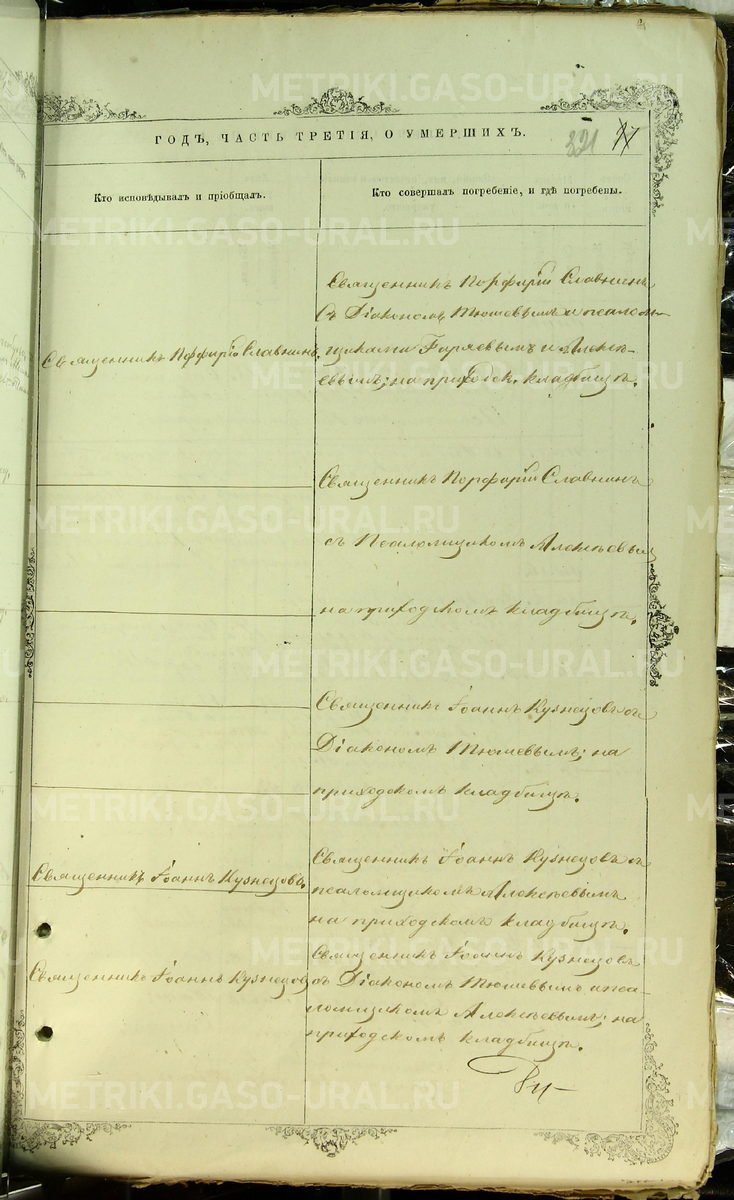 ГОДЪ, ЧАСТЬ ТРЕТІЯ, О УМЕРШИХЪ.
321
Кто исповѣдывалъ и пріобщалъ.
Кто совершалъ погребеніе, и гдѣ погребены.
Священникъ Порфирій Славнинъ
съ Діакономъ Тюшевымъ и псалом-
Священникъ Пофирій Славнинъ.
щиками Гаряевымъ и Алексѣ-
евымъ; на приходск. кладбищѣ.
Священникъ Порфирій Славнинъ
съ Псаломщикомъ Алексѣевым
на приходскомъ кладбищѣ.
Священникъ Іоаннъ Кузнецовъ съ
Діакономъ Тюшевымъ; на
приходскомъ кладбищѣ.
Священникъ Іоаннъ Кузнецовъ.
Священникъ Іоаннъ Кузнецовъ съ
псаломщикомъ Алексѣевымъ
на приходскомъ кладбищѣ.
Священникъ Іоаннъ Кузнецовъ
Священникъ Іоаннъ Кузнецовъ
съ Діакономъ Тюшевымъ и пса-
ломщикомъ Алексѣевымъ; на
приходскомъ кладбищѣ.
METRIKI.GASO-URAL.RU